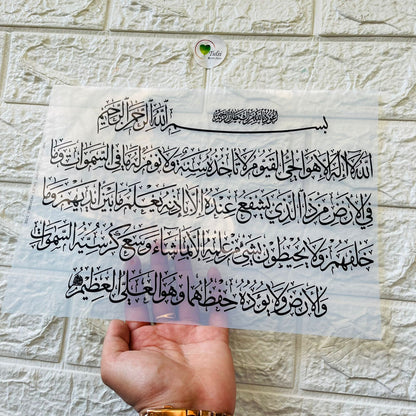 Tulis
أعوذ بالله من الشيطان الرجيم
بسم الله الرحمن الرحيم
الله لا إله إلا هو الحي القيوم لا تأخذه سنة ولا نوم له ما في السموات وما
في الأرض من ذا الذي يشفع عنده إلا بإذنه يعلم ما بين أيديهم وما
خلفهم ولا يحيطون بشيء من علمه إلا بما شاء وسع كرسيه السموات
والأرض ولا يؤده حفظهما وهو العلي العظيم